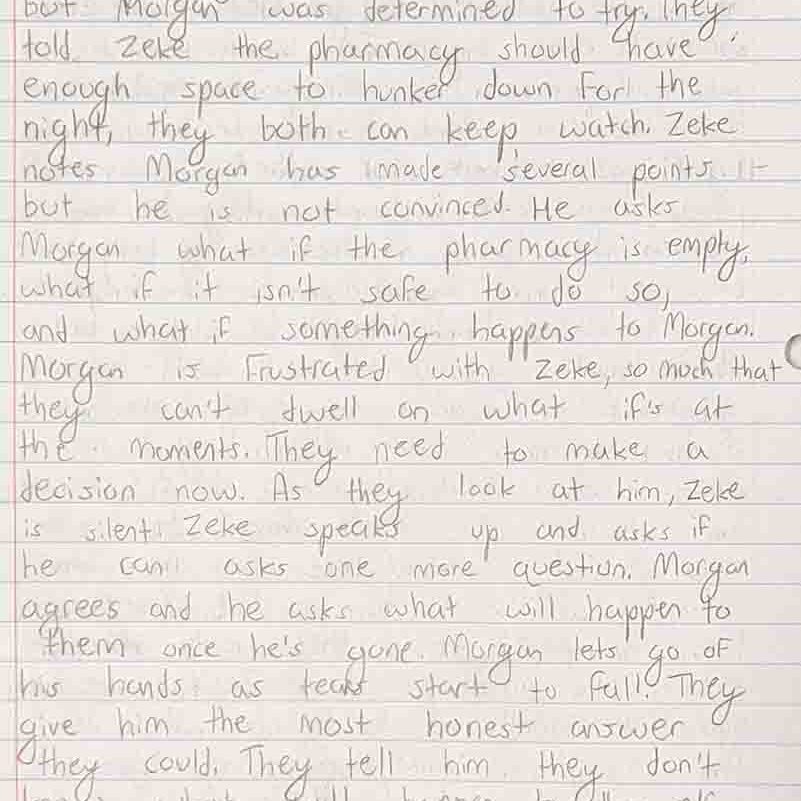 but Morgan was determined to try. They
told Zeke the pharmacy should have
enough space to hunker down for the
night, they both can keep watch. Zeke
notes Morgan has made several points
but he is not convinced. He asks
Morgan what if the pharmacy is empty,
what if it isn't safe to do so,
and what if something happens to Morgan.
Morgan is frustrated with Zeke, so much that
they can't dwell on what if's at
the moments. They need to make a
decision now. As they look at him, Zeke
is silent. Zeke speaks up and asks if
he can asks one more question. Morgan
agrees and he asks what will happen to
them once he's gone. Morgan lets go of
his hands as tears start to fall. They
give him the most honest answer
they could. They tell him they don't